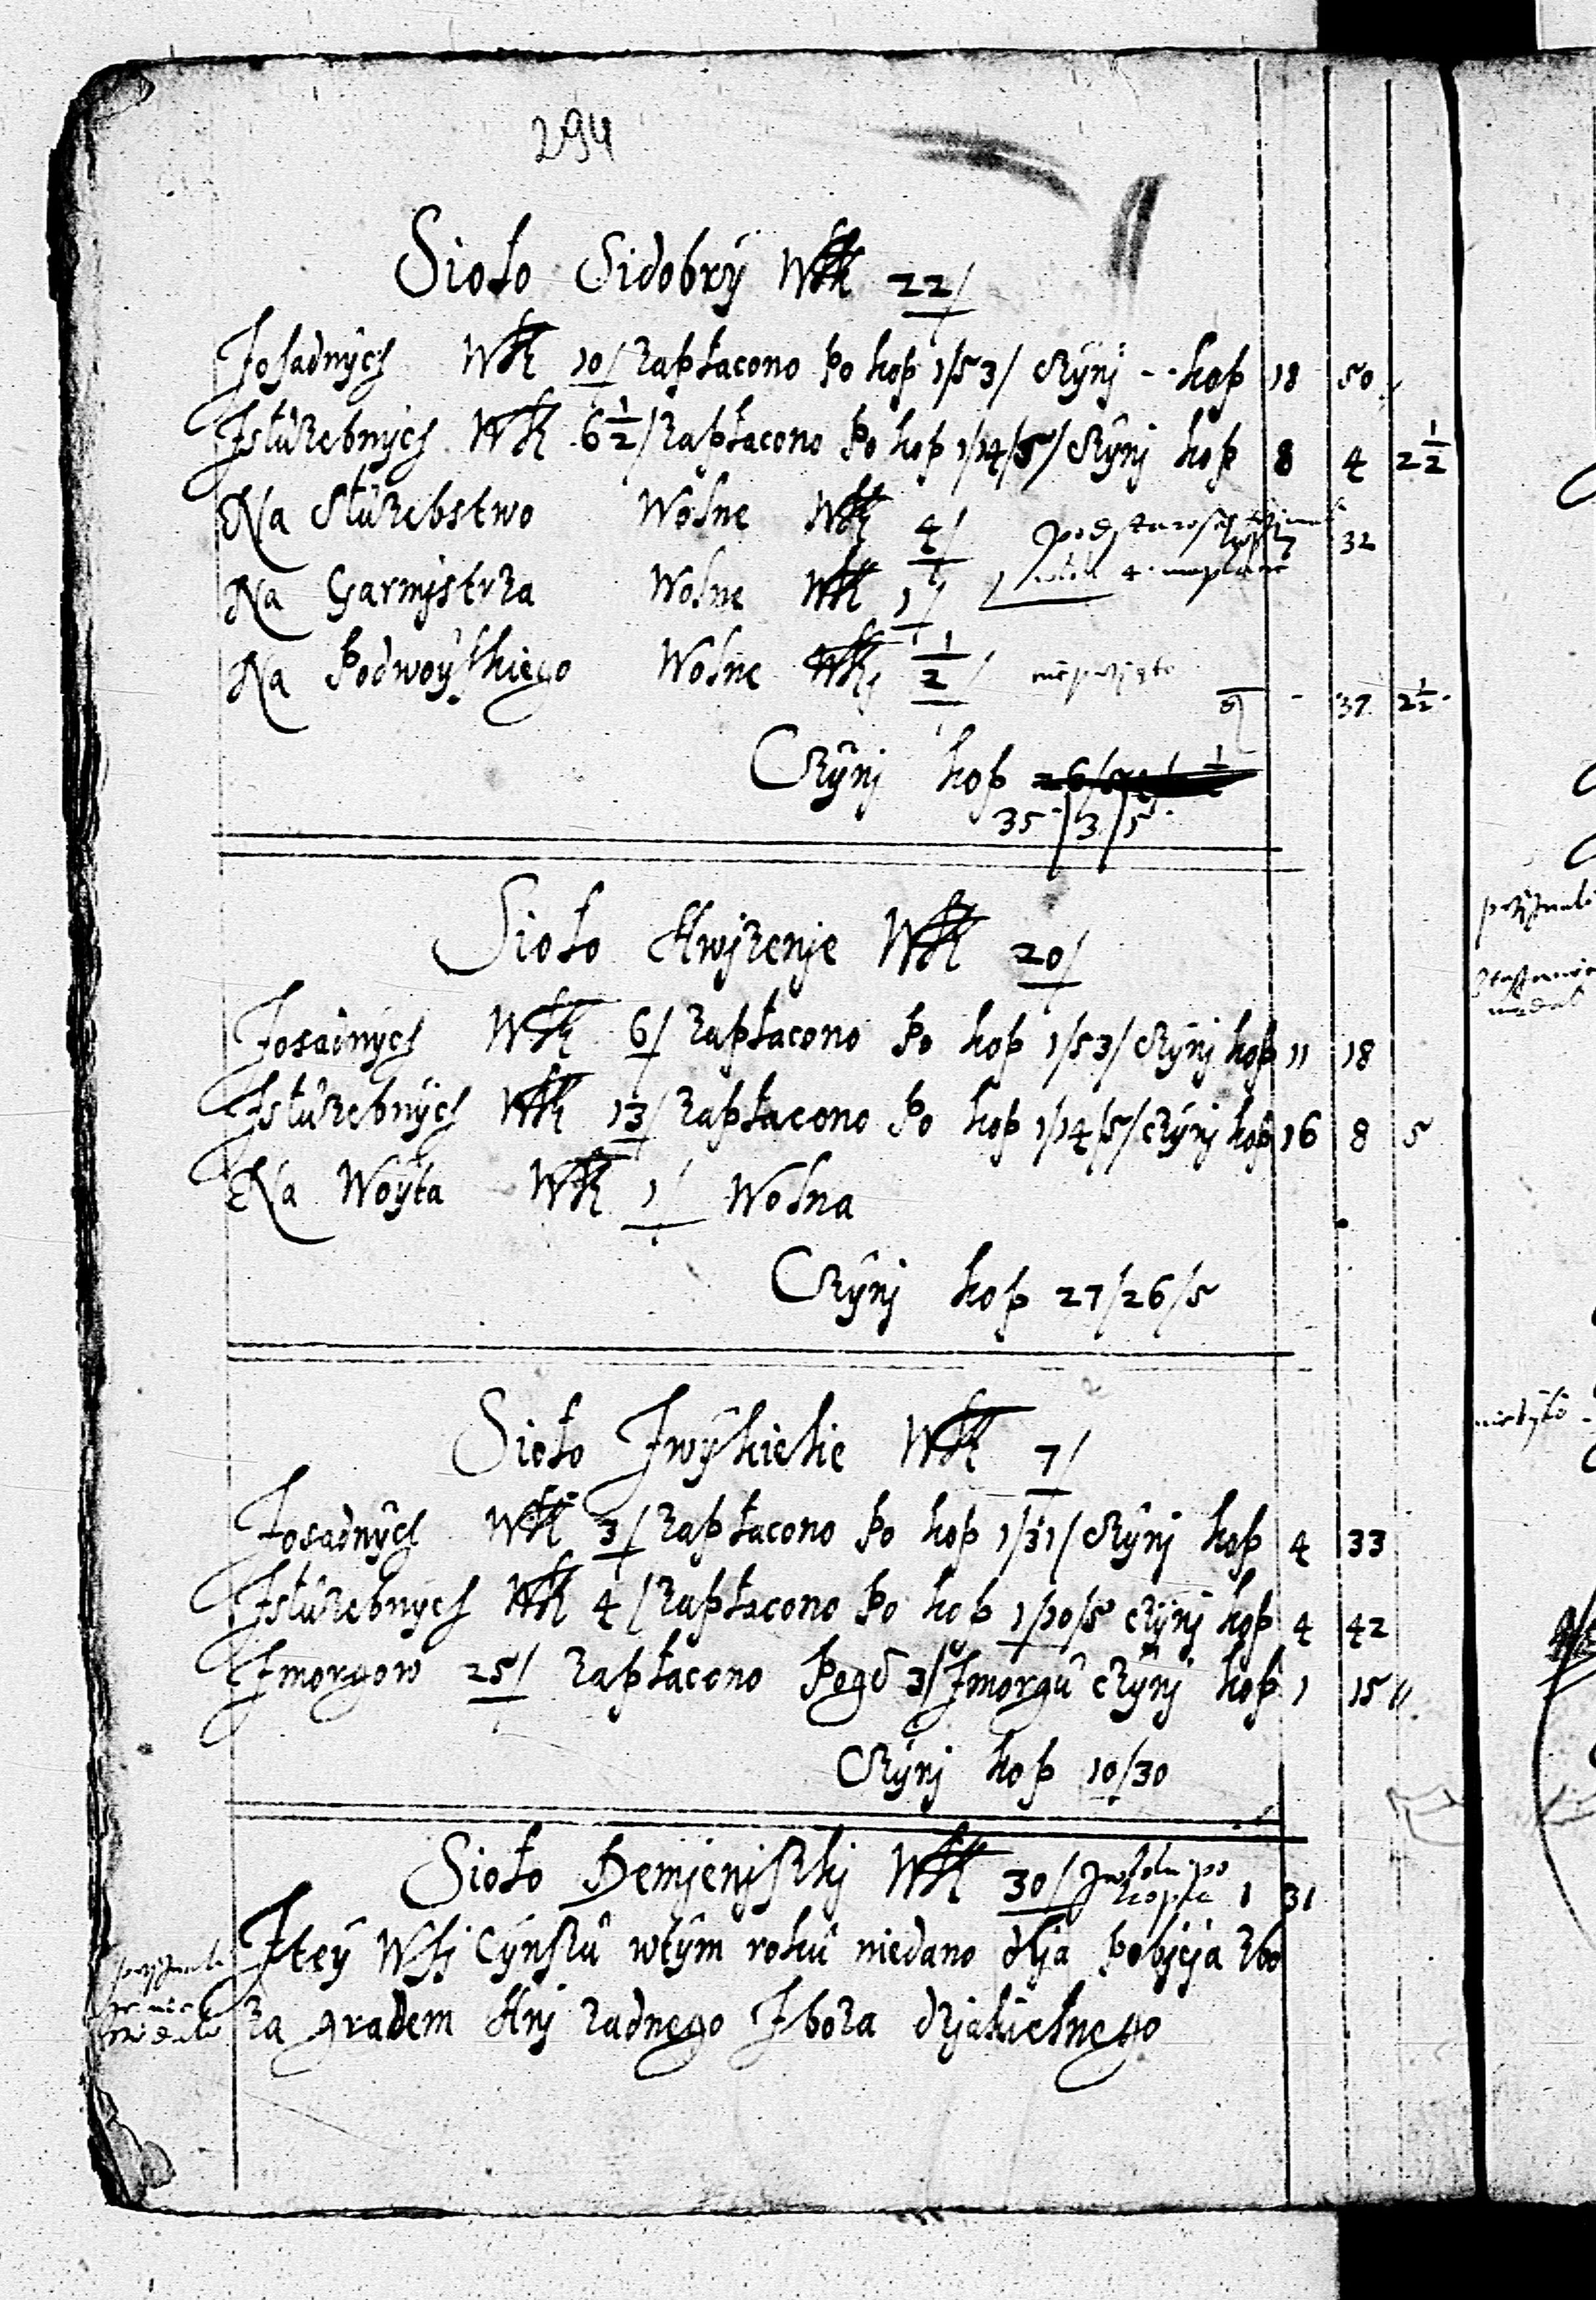 294
Sioło Sidobrÿ Włk 22/
Zosadnÿch Włk 10/ zapłacono po kop 1/53/ czÿnj kop 18 50
Zsłuzebnÿch Włk 6½/ zapłacono po kop 1/14/5/ czÿnj kop 8 4 2½
Na Słuzebstwo Wolne Włk 4/ 7 32
Na Garmjstrza Wolne Włk 1/
Na Podwoÿskiego Wolne Włkj ½/ nieprzyęto - 37 2½
Czÿnj kop
35/3/5
Sioło Hwjzenje Włk 20/
Zosadnÿch Włk 6/ zapłacono po kop 1/53/ czÿnj kop 11 18
Zsłuzebnÿch Włk 13/ zapłacono po kop 1/14/5/ czÿnj kop 16 8 5
Na Woÿta Włk 1/ Wolna
Czÿnj kop 27/26/5
Sioło Jwÿkielie Włk 7/
Zosadnÿch Włk 3/ zapłacono po kop 1/31/ czÿnj kop 4 33
Zsłuzebnÿch Włk 4/ zapłacono po kop 1/10/5 czÿnj kop 4 42
Zmorgow 25/ zapłacono po gď 3/ Zmorgu czÿnj kop 1 15
Czÿnj kop 10/30
Sioło Demjenjszkj Włk 30/ 1 31
Zteÿ Wsj Cÿnszu wtÿm roku niedano dlja pobjcja zbo
za gradem Anj zadnego Zboza dzjakielnego